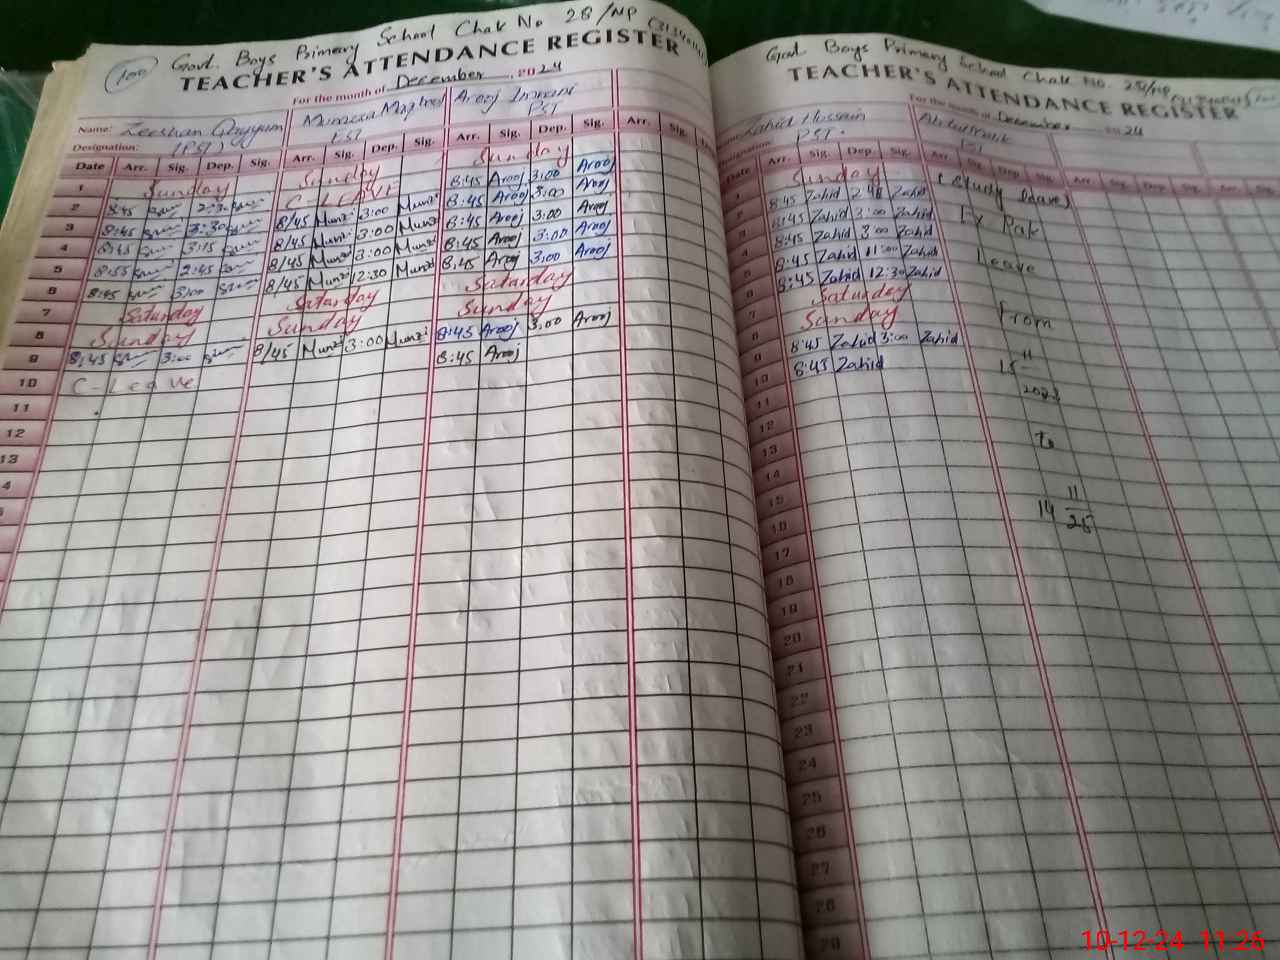 100
Govt. Boys Primary School Chak No 28/NP
TEACHER'S ATTENDANCE REGISTER
For the month of December, 2024
Name: Zeeshan Qayyum Arooj Imrani
Designation: (PST) PST PST
Date Arr. Sig. Dep. Sig. Arr. Sig. Dep. Sig. Arr. Sig. Dep. Sig. Arr. Sig.
1 Sunday Sunday Sunday
2 8:45 C-LEAVE 8:45 Arooj 3:00 Arooj
3 8:45 3:30 8/45 Munzi 3:00 Munzi 8:45 Arooj 3:00 Arooj
4 8:45 3:15 8/45 Munzi 3:00 Munzi 8:45 Arooj 3:00 Arooj
5 8:55 2:45 8/45 Munzi 3:00 Munzi 8:45 Arooj 3:00 Arooj
6 8:45 3:00 8/45 Munzi 12:30 Munzi 8:45 Arooj 3:00 Arooj
7 Saturday Saturday Saturday
8 Sunday Sunday Sunday
9 8:45 3:00 8/45 Munzi 3:00 Munzi 8:45 Arooj 3:00 Arooj
10 C-Leave 8:45 Arooj
11
12
13
4
Govt Boys Primary School Chak No. 28/NP
TEACHER'S ATTENDANCE REGISTER
For the month of December 2024
Zahid Hussain
PST.
Date Arr. Sig. Dep. Sig. Arr Sig. Dep Sig. Arr Sig. Dep Sig. Arr Sig.
1 Sunday (Study leave)
2 8:45 Zahid Zahid
3 8:45 Zahid 3:00 Zahid Ex Pak
4 8:45 Zahid 3:00 Zahid
5 8:45 Zahid 11:00 Zahid Leave
6 8:45 Zahid 12:30 Zahid
7 Saturday
8 Sunday From
9 8:45 Zahid 3:00 Zahid
10 8:45 Zahid 15 11
11
12
13 to
14
15 11
16 14 25
17
18
19
20
21
22
23
24
25
26
27
28
29
10-12-24 11:26